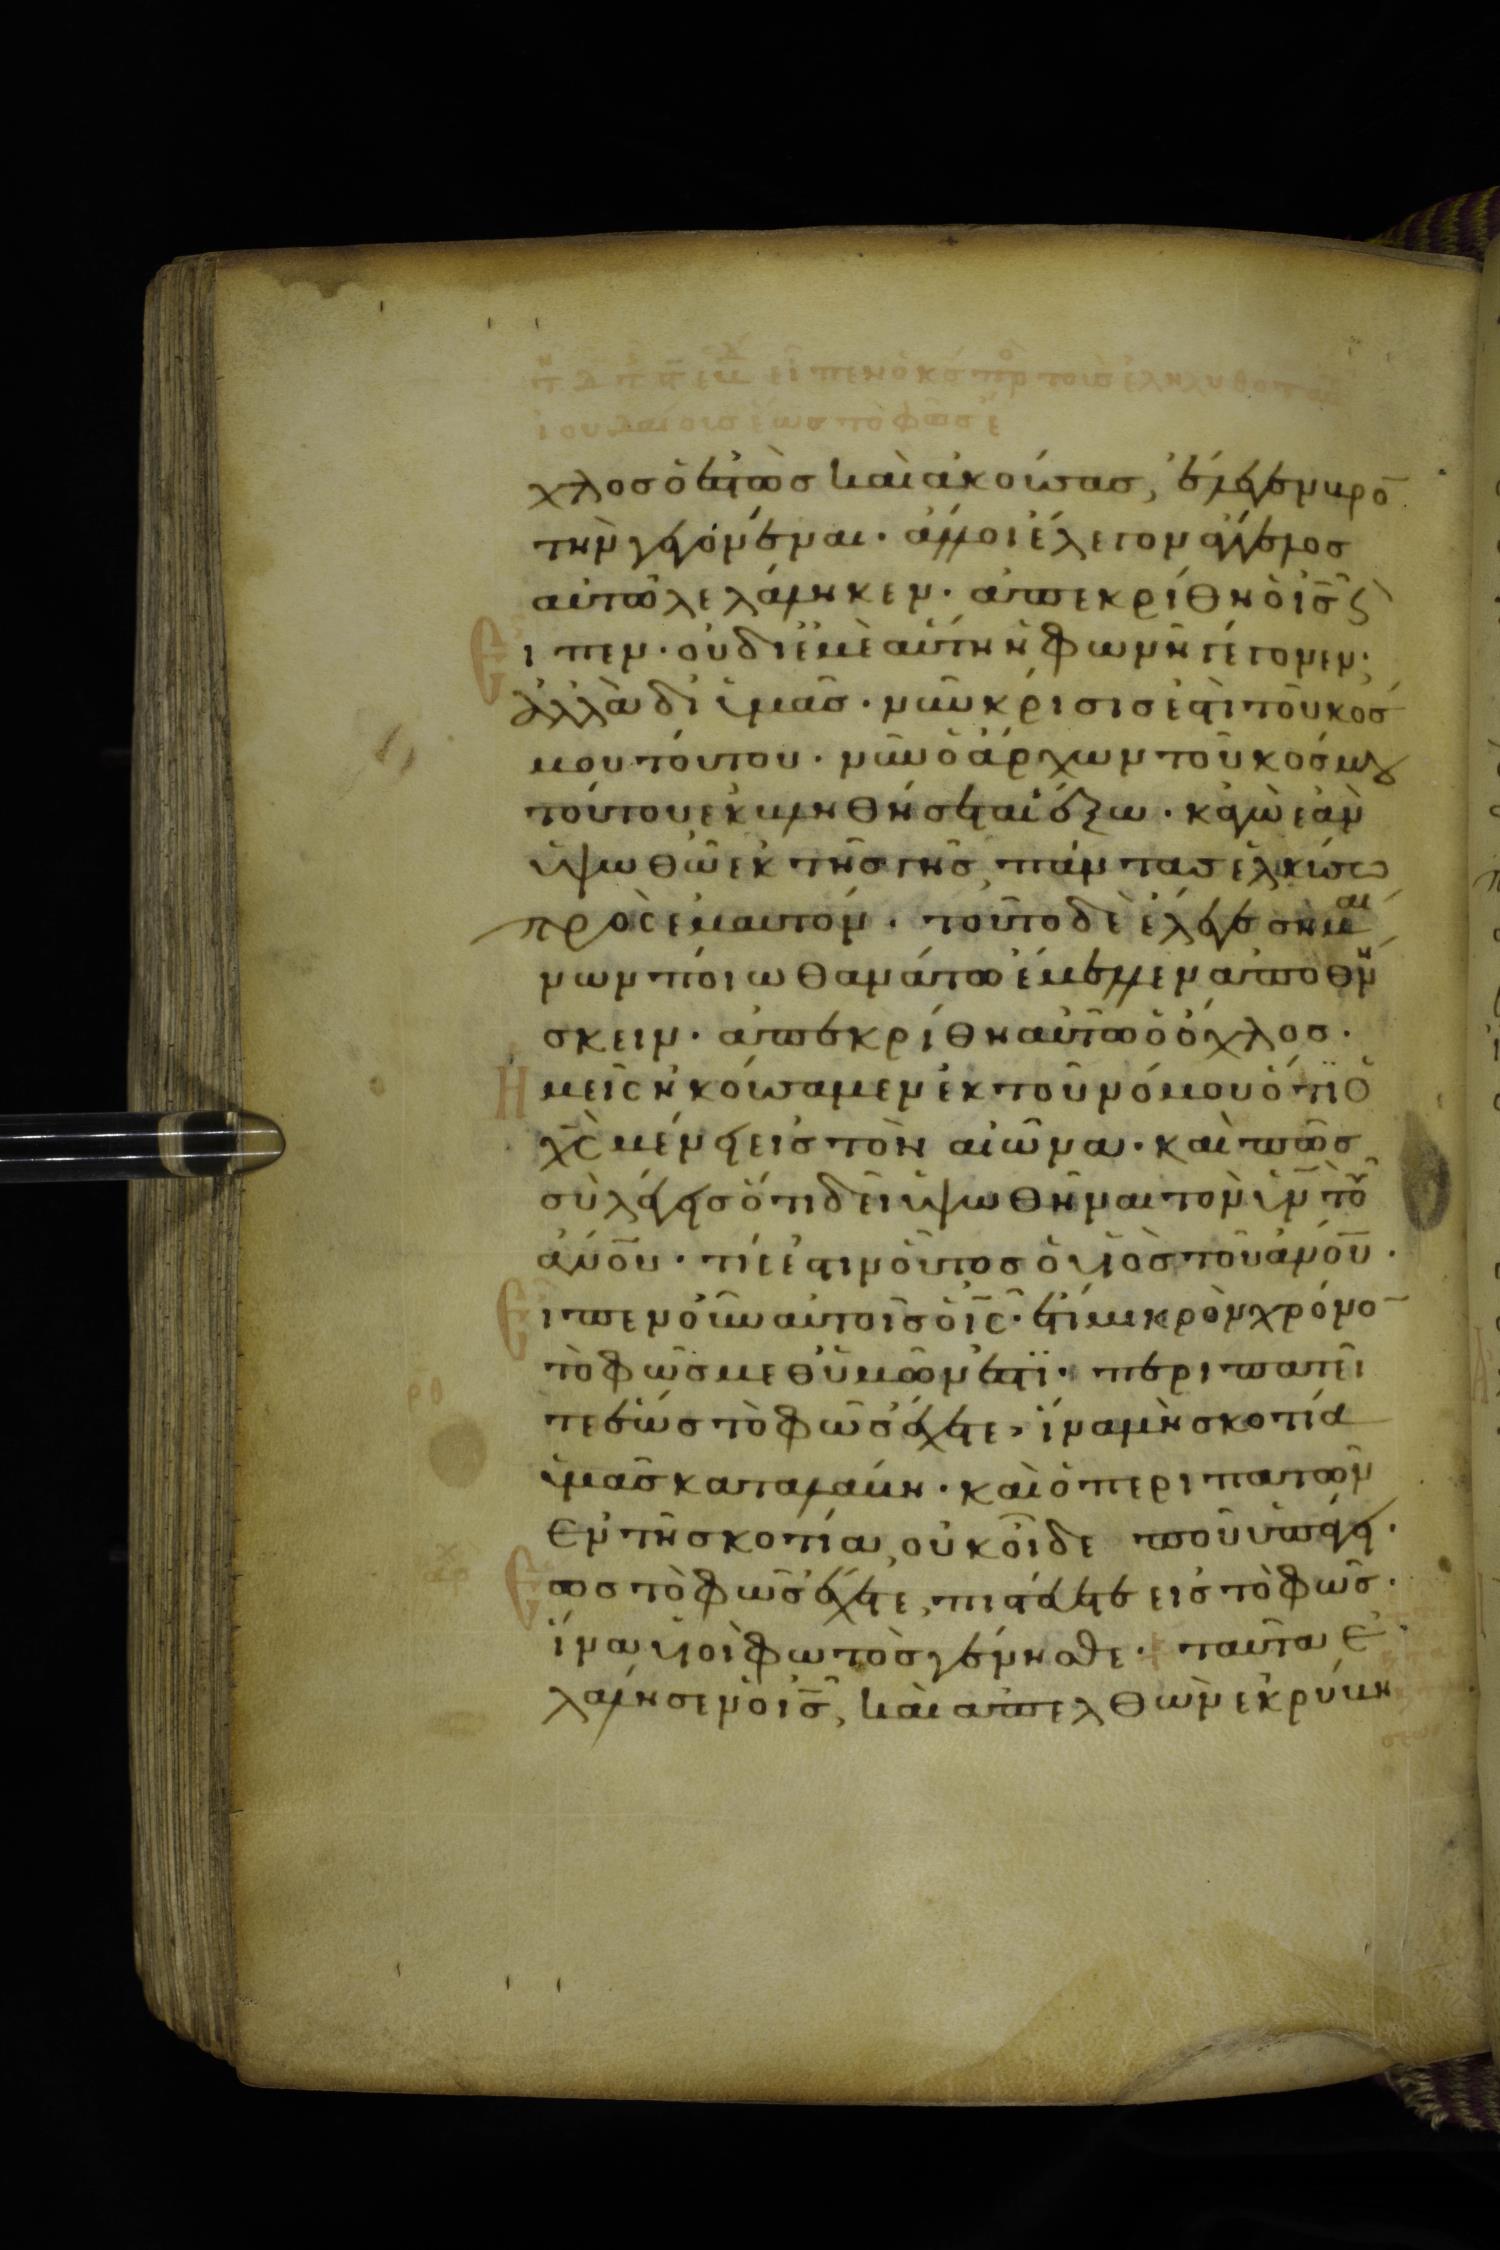 χλοσ ὁ ἑστὼσ καὶ ἀκούσασ, ἔλεγεν βρο
τὴν γεγονέναι· ἄλλοι ἔλεγον ἄγγελοσ
αὐτῶ λελάληκεν· ἀπεκρίθη ὁ ισ ϛ
Ειπεν· οὐ δι ἐμὲ αὕτη ἡ φωνὴ γέγονεν·
ἀλλὰ δι ὑμᾶσ· νῦν κρίσισ ἐστὶ τοῦ κόσ
μου τούτου· νῦν ὁ ἄρχων τοῦ κόσμου
τούτου ἐκβληθήσεται ἔξω· κἀγὼ ἐὰν
ὑψωθῶ ἐκ τῆσ γῆσ, πάντασ ἑλκύσω
πρὸσ ἐμαυτόν· τοῦτο δὲ ἔλεγε σημαι
νων ποίω θανάτω ἔμελλεν ἀποθνή
σκειν· ἀπεκρίθη αὐτῶ ὁ ὄχλοσ·
Ημεῖσ ἠκούσαμεν ἐκ τοῦ νόμου ὅτι ὁ
χσ μένει εἰσ τὸν αἰῶνα· καὶ πῶσ
σὺ λέγεισ ὅτι δεῖ ὑψωθῆναι τὸν υν τοῦ
ανου· τίσ ἐστιν οὗτοσ ὁ υἱὸσ τοῦ ανου·
Ειπεν οὖν αὐτοῖσ ὁ ισ· ἔτι μικρὸν χρόνο
τὸ φῶσ μεθ ὑμῶν ἐστι· περιπατεῖ
τε ἕωσ τὸ φῶσ ἔχετε, ἵνα μὴ σκοτία
ὑμᾶσ καταλάβη· καὶ ὁ περιπατῶν
ἐν τῆ σκοτία, οὐκ οἶδε ποῦ ὑπάγει·
Εωσ τὸ φῶσ ἔχετε, πιστεύετε εἰσ τὸ φῶσ·
ἵνα υἱοὶ φωτὸσ γένησθε· ταῦτα ἐ
λάλησεν ὁ ισ, καὶ ἀπελθὼν ἐκρύβη